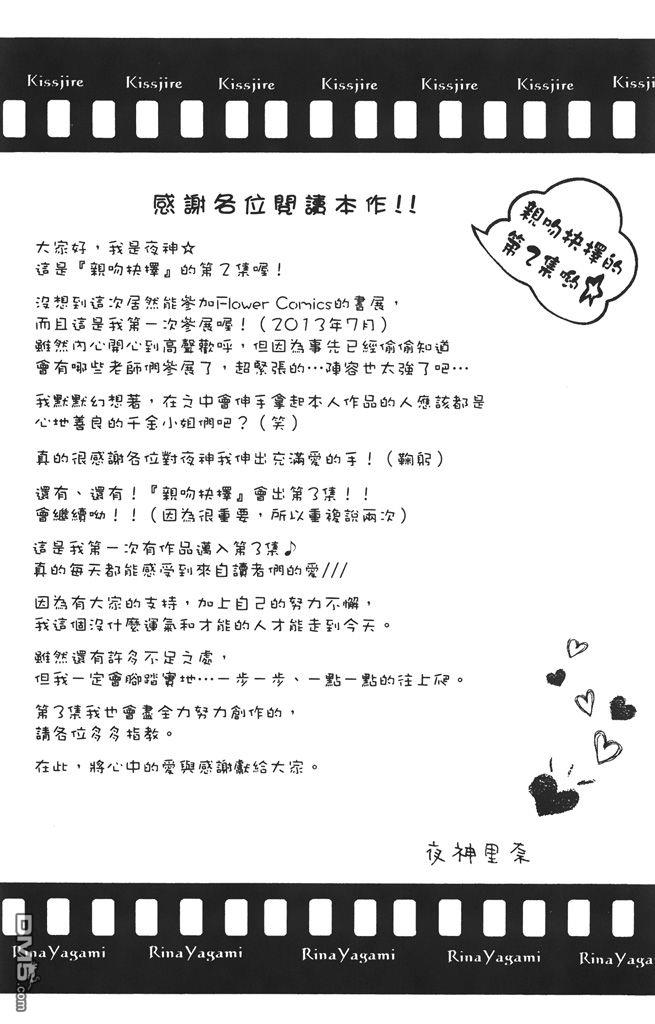 Kissjire Kissjire Kissjire Kissjire Kissjire Kissjire Kissji
感謝各位閱讀本作!!
親吻抉擇的
第2集喲☆
大家好，我是夜神☆
這是『親吻抉擇』的第2集喔！
沒想到這次居然能參加Flower Comics的書展，
而且這是我第一次參展喔！（2013年7月）
雖然內心開心到高聲歡呼，但因為事先已經偷偷知道
會有哪些老師們參展了，超緊張的…陣容也太強了吧…
我默默幻想著，在之中會伸手拿起本人作品的人應該都是
心地善良的千金小姐們吧？（笑）
真的很感謝各位對夜神我伸出充滿愛的手！（鞠躬）
還有、還有！『親吻抉擇』會出第3集！！
會繼續呦！！（因為很重要，所以重複說兩次）
這是我第一次有作品邁入第3集♪
真的每天都能感受到來自讀者們的愛///
因為有大家的支持，加上自己的努力不懈，
我這個沒什麼運氣和才能的人才能走到今天。
雖然還有許多不足之處，
但我一定會腳踏實地…一步一步、一點一點的往上爬。
第3集我也會盡全力努力創作的，
請各位多多指教。
在此，將心中的愛與感謝獻給大家。
夜神里奈
RinaYagami RinaYagami RinaYagami RinaYagami RinaYaga
DM5.com